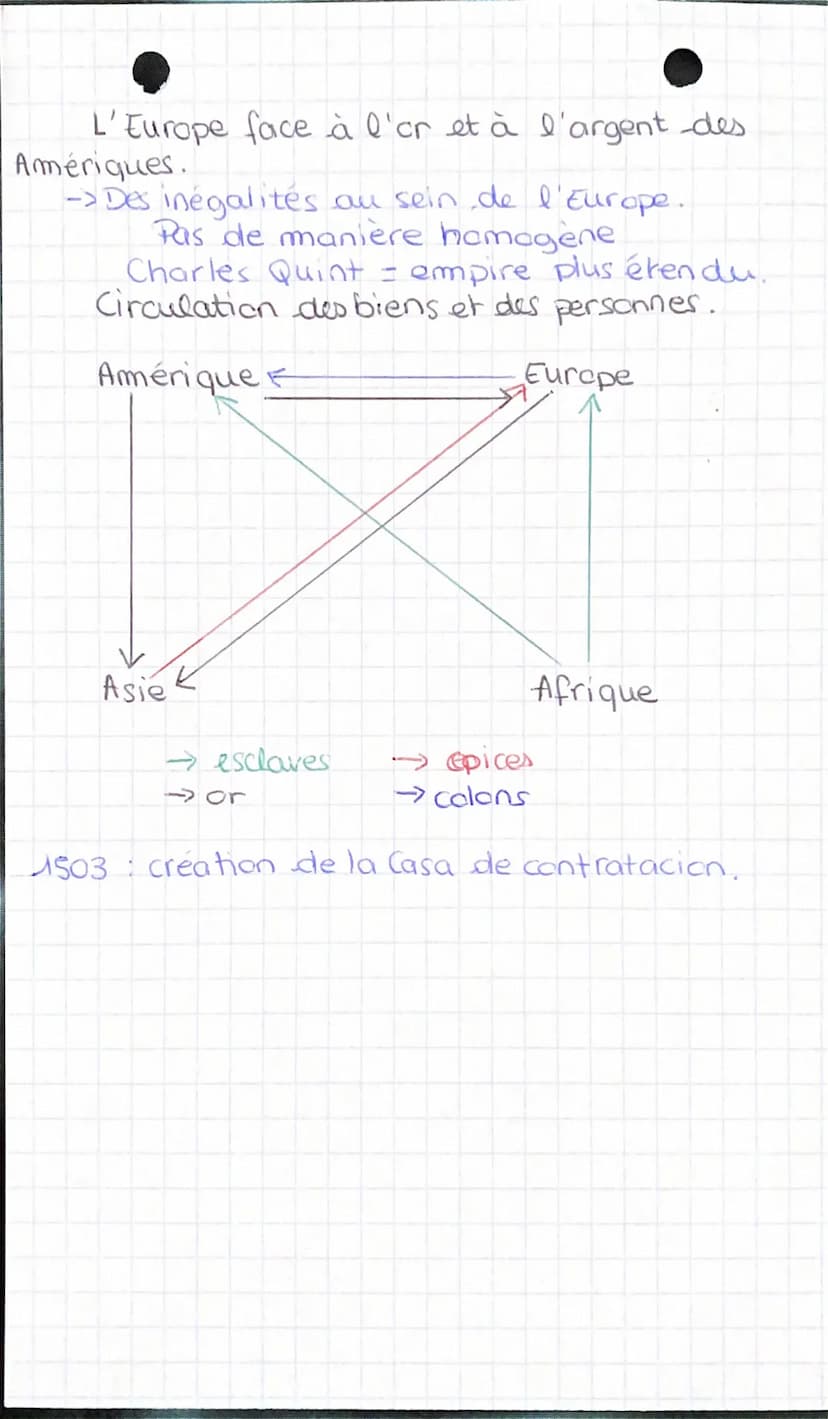 L'Europe face à l'or et à l'argent des
Amériques.
-> Des inégalités au sein de l'Europe.
Pas de manière homogène
Charles Quint = empire plus étendu.
Circulation des biens et des personnes.
Amérique Europe
Asie Afrique
→ esclaves → épices
→ or → colons
1503 : création de la Casa de contratacion.